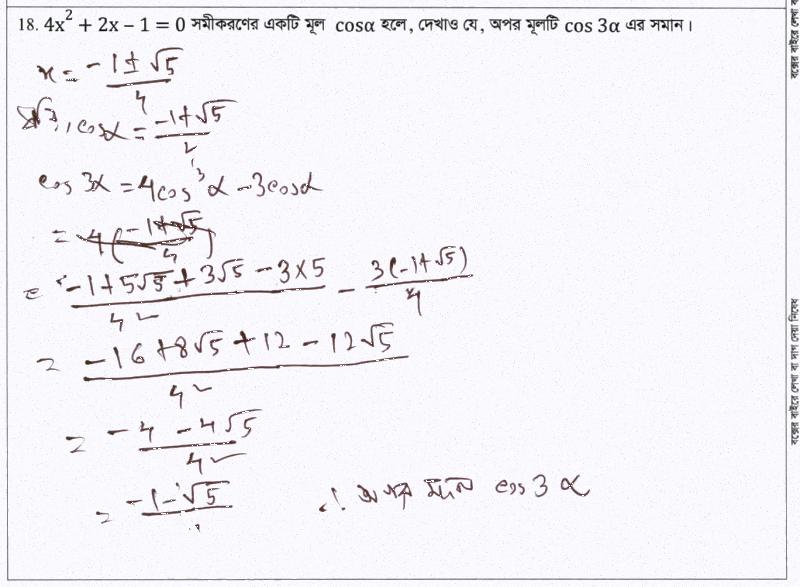 18. 4x² + 2x – 1 = 0 সমীকরণের একটি মূল cosα হলে, দেখাও যে, অপর মূলটি cos 3α এর সমান।
x = (-1 ± √5)/4
ধরি, cosα = (-1+√5)/2
cos 3α = 4cos³α - 3cosα
= 4((-1+√5)/4)
= (-1+5√5+3√5-3×5)/4² - 3(-1+√5)/4
= (-16+8√5+12-12√5)/4²
= (-4-4√5)/4²
= (-1-√5)/
∴ অপর মূল cos 3α
বক্সের বাইরে লেখা বা দাগ দেয়া নিষেধ